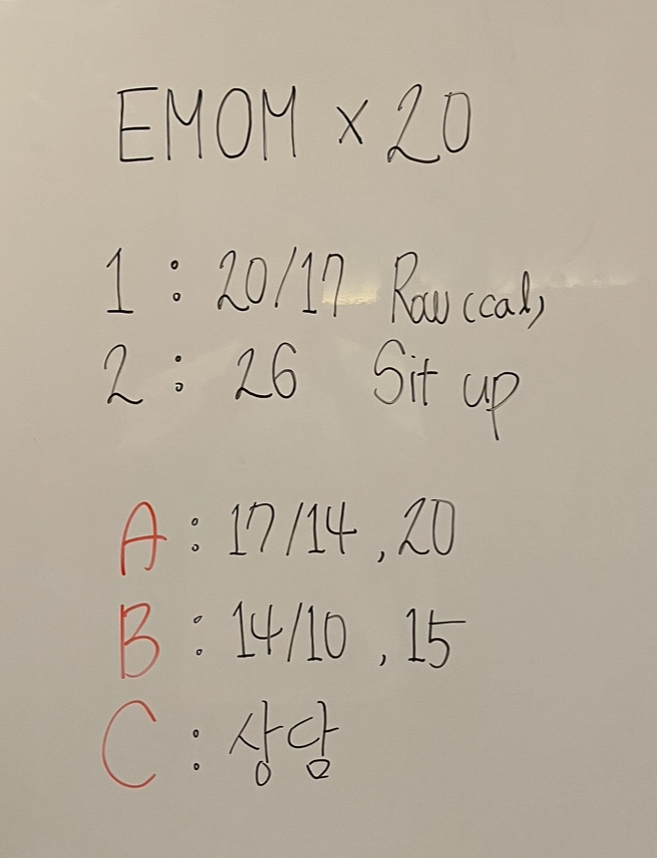 EMOM × 20
1 : 20/17 Row (cal)
2 : 26 Sit up
A : 17/14 , 20
B : 14/10 , 15
C : 상담